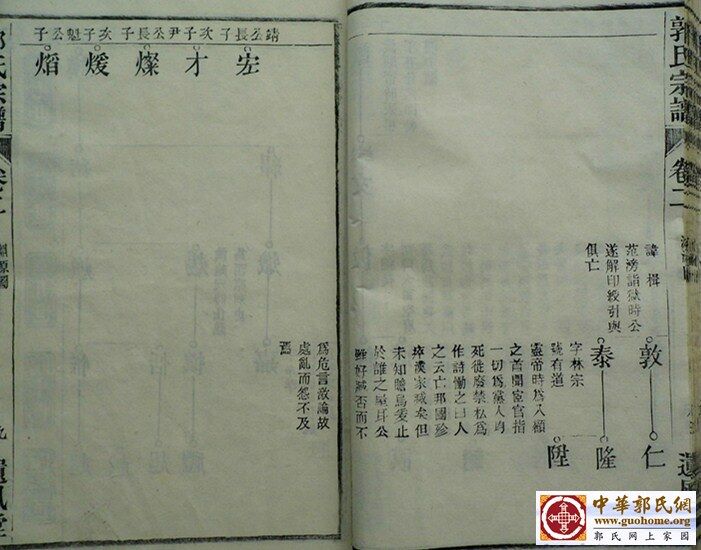 郭氏宗譜
卷二
諱楫
范滂詣獄時公
遂解印綬引與
俱亡
敦
仁
泰
隆
陞
字林宗
號有道
靈帝時爲八顧
之首閹宦官指
一切爲黨人均
死徙廢禁私爲
作詩慟之曰人
之云亡邦國殄
瘁漢家滅矣但
未知瞻烏爰止
於誰之屋耳公
雖好臧否而不
爲危言激論故
處亂而怨不及
焉
靖公長子
次子
尹公長子
次子
魁公子
宏
才
燦
煖
熖
九
中華郭氏網
www.guohome.org
郭氏网上家园